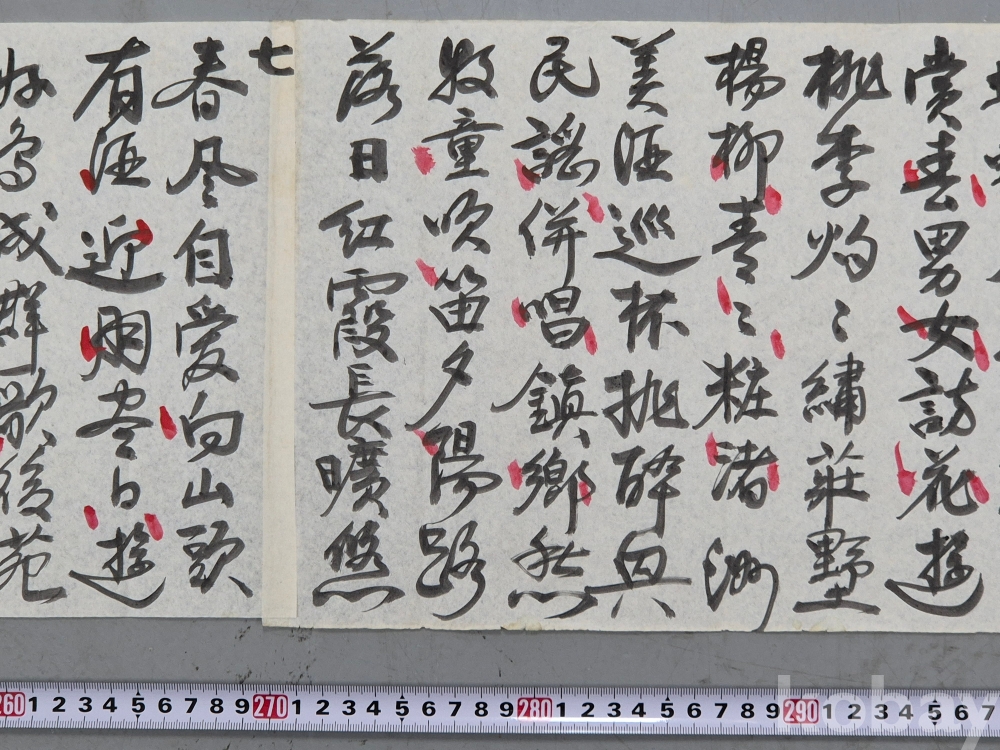 賞春男女訪花遊
桃李灼〻繡莊野
楊柳青〻粧渚洲
美酒巡杯挑醉興
民謠併唱鎮鄉愁
牧童吹笛夕陽路
落日紅霞長曠悠
七
春風自愛向山頭
有酒近朋盡日遊
好鳥成群歌後苑
260 1 2 3 4 5 6 7 8 9 270 1 2 3 4 5 6 7 8 9 280 1 2 3 4 5 6 7 8 9 290 1 2 3 4 5 6 7
kobay